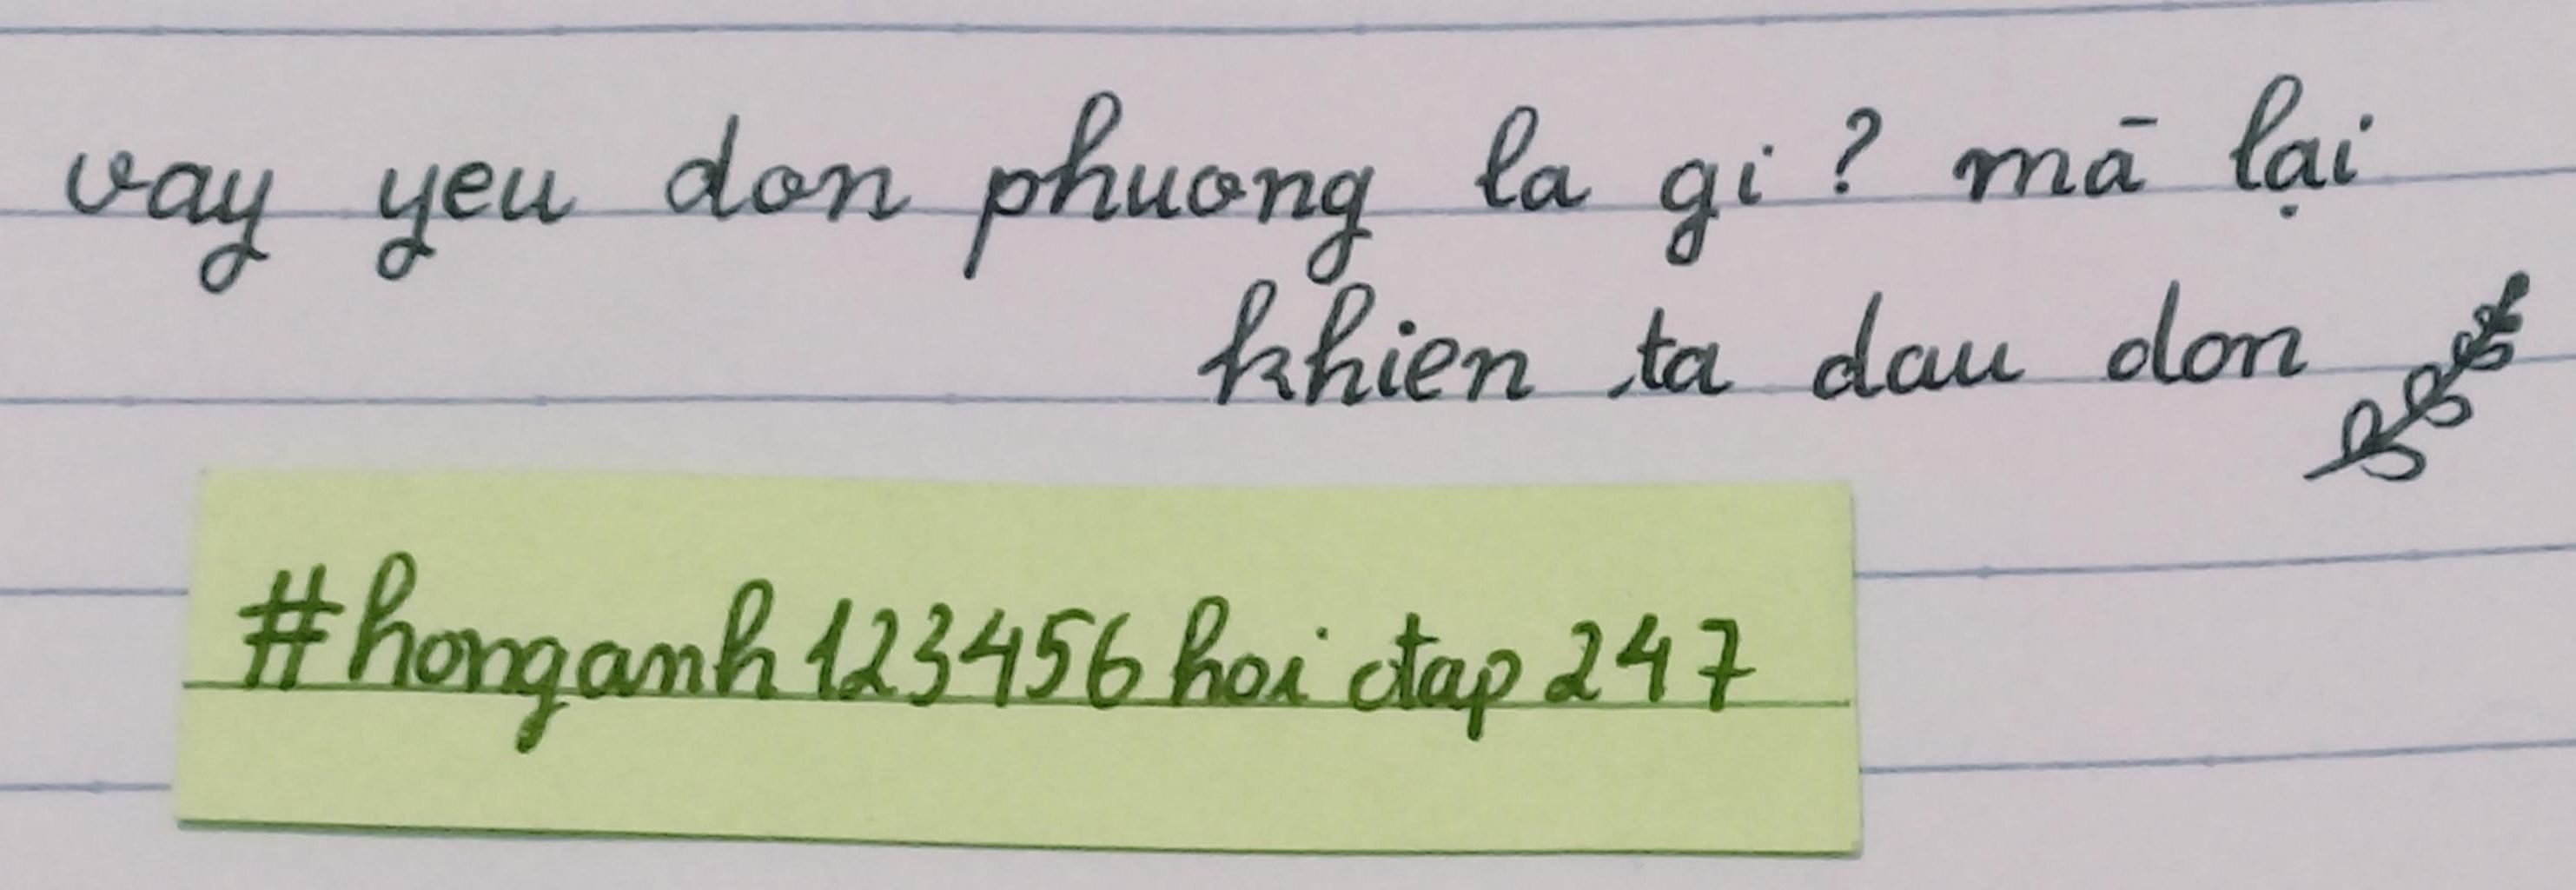 vay yeu don phuong la gi? mā lại
khien ta dau don
#honganh123456 hoi dtap 247